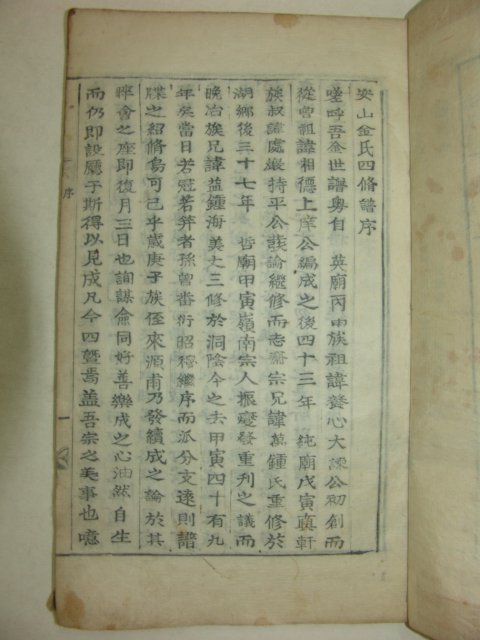 安山金氏四修譜序
嗟呼吾金世譜粤自 英廟丙申族祖諱養心大諫公初創而
從曾祖諱相德上庠公編成之後四十三年 純廟戊寅 軒
族叔諱處巖持平公談論繼修而志齋宗兄諱萬鍾氏重修於
湖鄉後三十七年 哲廟甲寅嶺南宗人振 發重刊之議而
晚冶族兄諱益鍾海美丈三修於洞陰今之去甲寅四十有九
年矣當日若冠若笄者孫曾蕃衍昭穆繼序而派分支遠則譜
牒之紹修烏可已乎歲庚子族侄來源甫乃發續成之論於其
晬會之座即復月三日也詢謀僉同好善樂成之心油然自生
而仍即設廳于斯得以見成凡今四曁焉盖吾宗之美事也噫
序
一